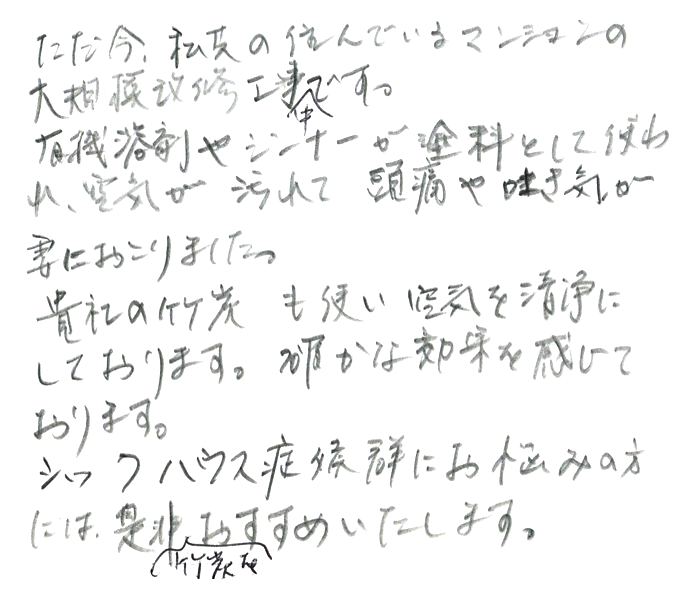 ただ今、私共の住んでいるマンションの
大規模改修工事中です。
有機溶剤やシンナーが塗料として使わ
れ、空気が汚れて頭痛や吐き気が
妻におこりました。
貴社の竹炭も使い空気を清浄に
しております。確かな効果を感じて
おります。
シックハウス症候群にお悩みの方
には、是非竹炭をおすすめいたします。